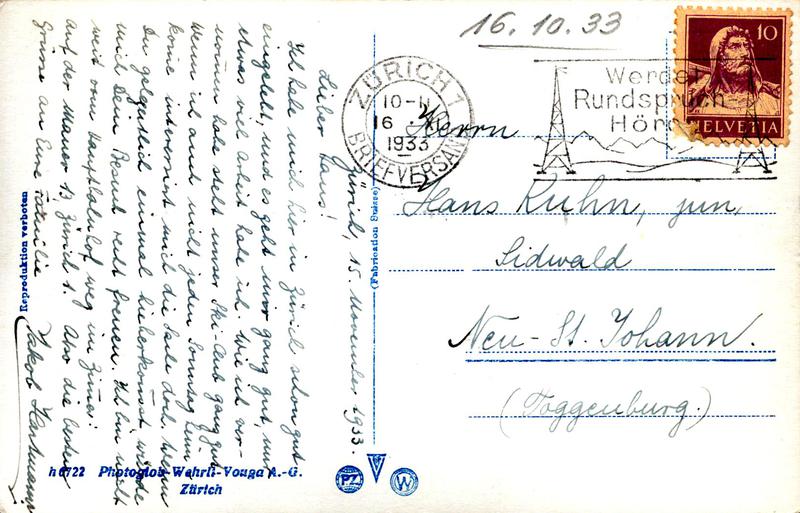 16.10.33
10
HELVETIA
ZÜRICH 1
10-11
16
1933
BRIEFVERSAND
Werdet
Rundspruch
Hörer
Herrn
Hans Kuhn, jun,
Sidwald
Neu-St. Johann.
(Toggenburg.)
Zürich, 15. November 1933.
Lieber Hans!
Ich habe mich hier in Zürich schon gut
eingelebt, und es geht mir ganz gut, nur
etwas viel Arbeit habe ich. Wie ich ver-
nommen habe steht unser Ski-Club ganz gut
Wenn ich auch nicht jeden Sonntag heim
kome intressiert mich die Sache doch. Wenn
Du gelegentlich einmal hieherkommst würde
mich Dein Besuch recht freuen. Ich bin nicht
weit vom Hauptbahnhof weg im Zimer:
auf der Mauer 13 Zürich 1. Also die besten
Grüsse an Eure Familie Jakob Hartmann
Reproduktion verboten
(Fabrication Suisse)
h 6722 Photoglob-Wehrli-Vouga A.-G.
Zürich
PZ
V
W